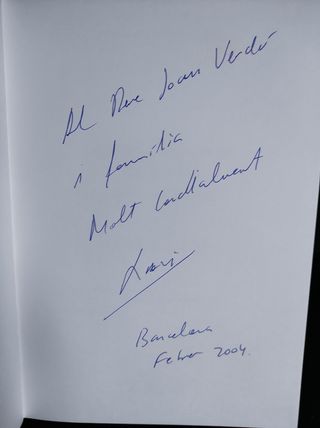 Al Dr Joan Verdú
i família
Molt Cordialment
Barcelona
Febrer 2004.